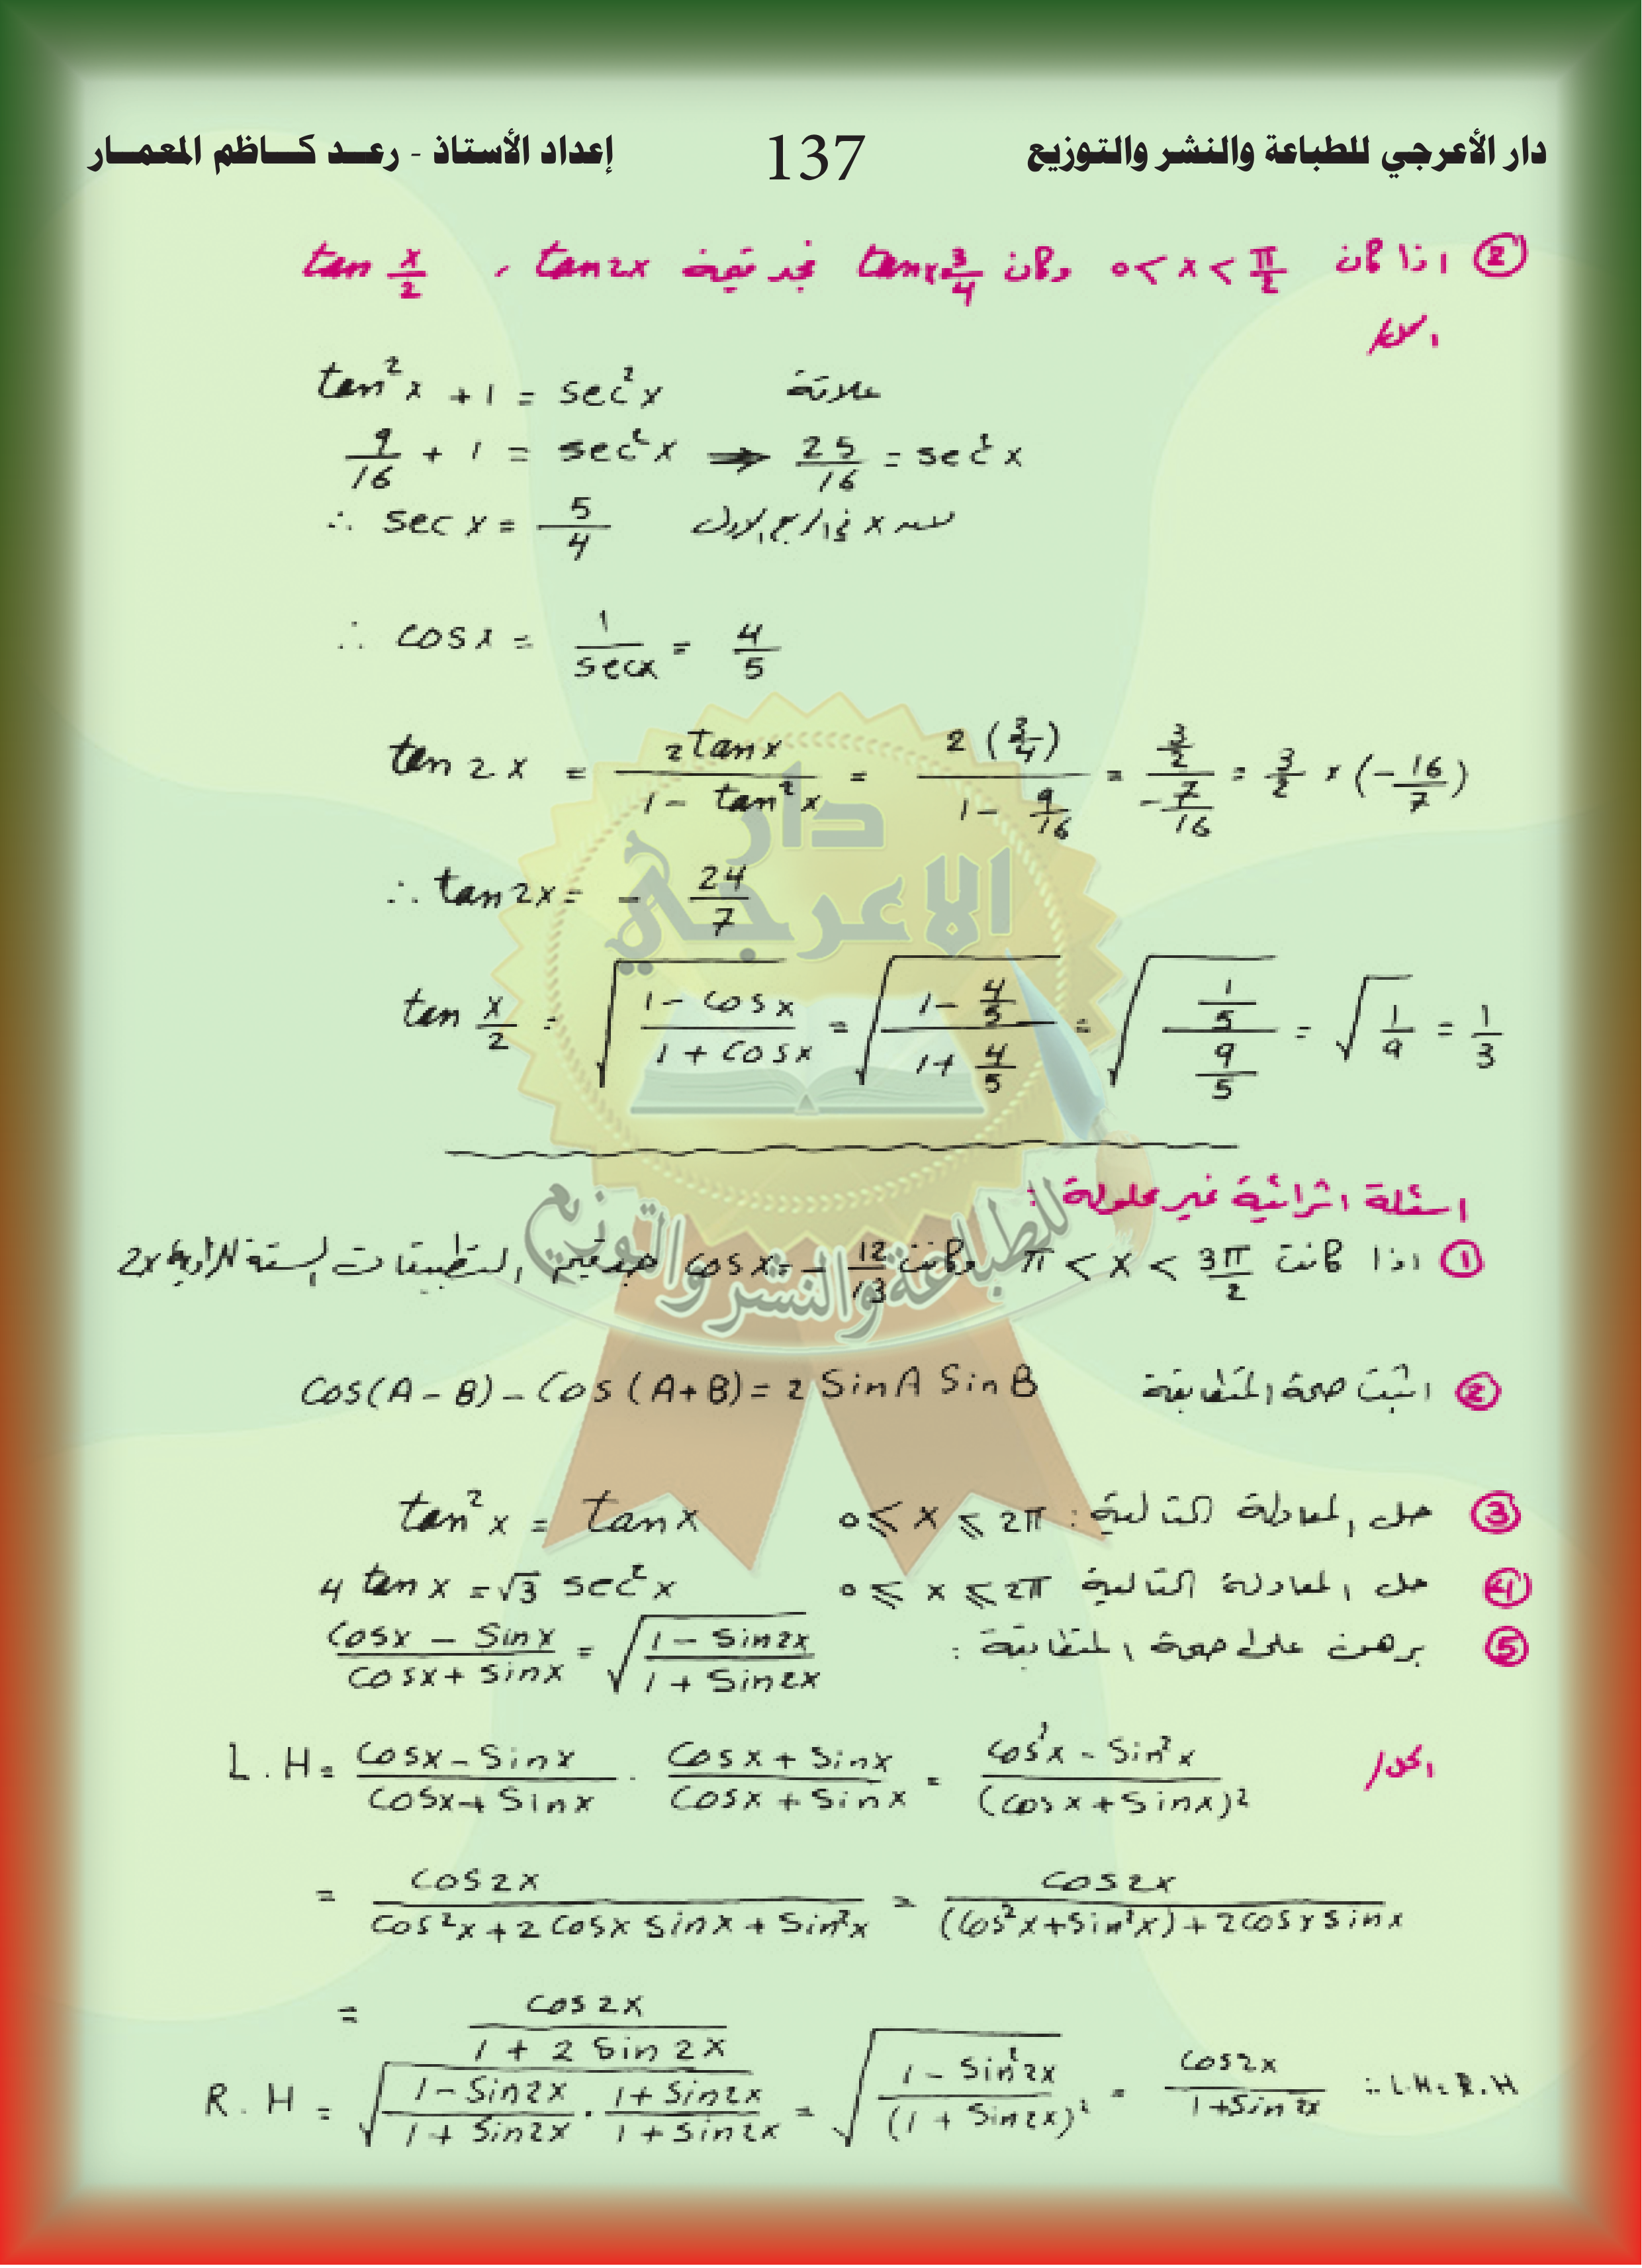 دار الأعرجي للطباعة والنشر والتوزيع 137 إعداد الأستاذ - رعـد كـاظم المعمـار
② اذا كان 0 < x < π/2 وكان tan x = 3/4 جد قيمة tan 2x ، tan x/2
الحل/
tan²x + 1 = sec²x علاقة
9/16 + 1 = sec²x ⇒ 25/16 = sec²x
∴ sec x = 5/4 لان x في الربع الاول
∴ cos x = 1/sec x = 4/5
tan 2x = 2 tan x / (1 - tan²x) = 2(3/4) / (1 - 9/16) = (3/2) / (-7/16) = 3/2 × (-16/7)
∴ tan 2x = - 24/7
tan x/2 = √((1 - cos x)/(1 + cos x)) = √((1 - 4/5)/(1 + 4/5)) = √((1/5)/(9/5)) = √(1/9) = 1/3
دار
الاعرجي
للطباعة والنشر والتوزيع
اسئلة اثرائية غير محلولة :
① اذا كانت π < x < 3π/2 وكانت cos x = - 12/13 جد قيم التطبيقات الستة للزاوية 2x
② اثبت صحة المتطابقة cos(A - B) - cos(A + B) = 2 sin A sin B
③ حل المعادلة التالية : 0 ≤ x ≤ 2π tan²x = tan x
④ حل المعادلة التالية 0 ≤ x ≤ 2π 4 tan x = √3 sec²x
⑤ برهن على صحة المتطابقة : (cos x - sin x)/(cos x + sin x) = √((1 - sin 2x)/(1 + sin 2x))
الحل/ L.H = (cos x - sin x)/(cos x + sin x) . (cos x + sin x)/(cos x + sin x) = (cos²x - sin²x)/(cos x + sin x)²
= cos 2x / (cos²x + 2 cos x sin x + sin²x) = cos 2x / ((cos²x + sin²x) + 2 cos x sin x)
= cos 2x / (1 + 2 sin 2x)
R.H = √((1 - sin 2x)/(1 + sin 2x) . (1 + sin 2x)/(1 + sin 2x)) = √((1 - sin²2x)/(1 + sin 2x)²) = cos 2x / (1 + sin 2x) ∴ L.H = R.H